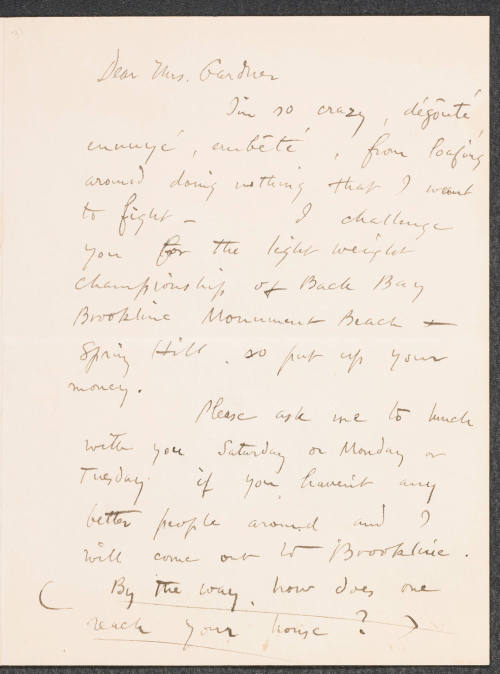 3
Dear Mrs. Gardner
I'm so crazy, dégôuté
ennuyé, embêté, from loafing
around doing nothing that I want
to fight — I challenge
you for the light weight
championship of Back Bay
Brookline Monument Beach +
Spring Hill. so put up your
money.
Please ask me to lunch
with you Saturday or Monday or
Tuesday if you haven't any
better people around and I
will come out to Brookline.
( By the way, how does one
reach your house? )